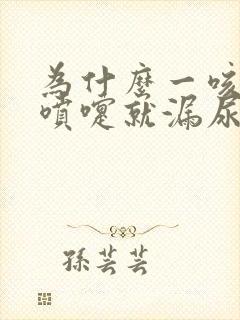 為什麼一咳
噴嚏就漏尿
孫芸芸